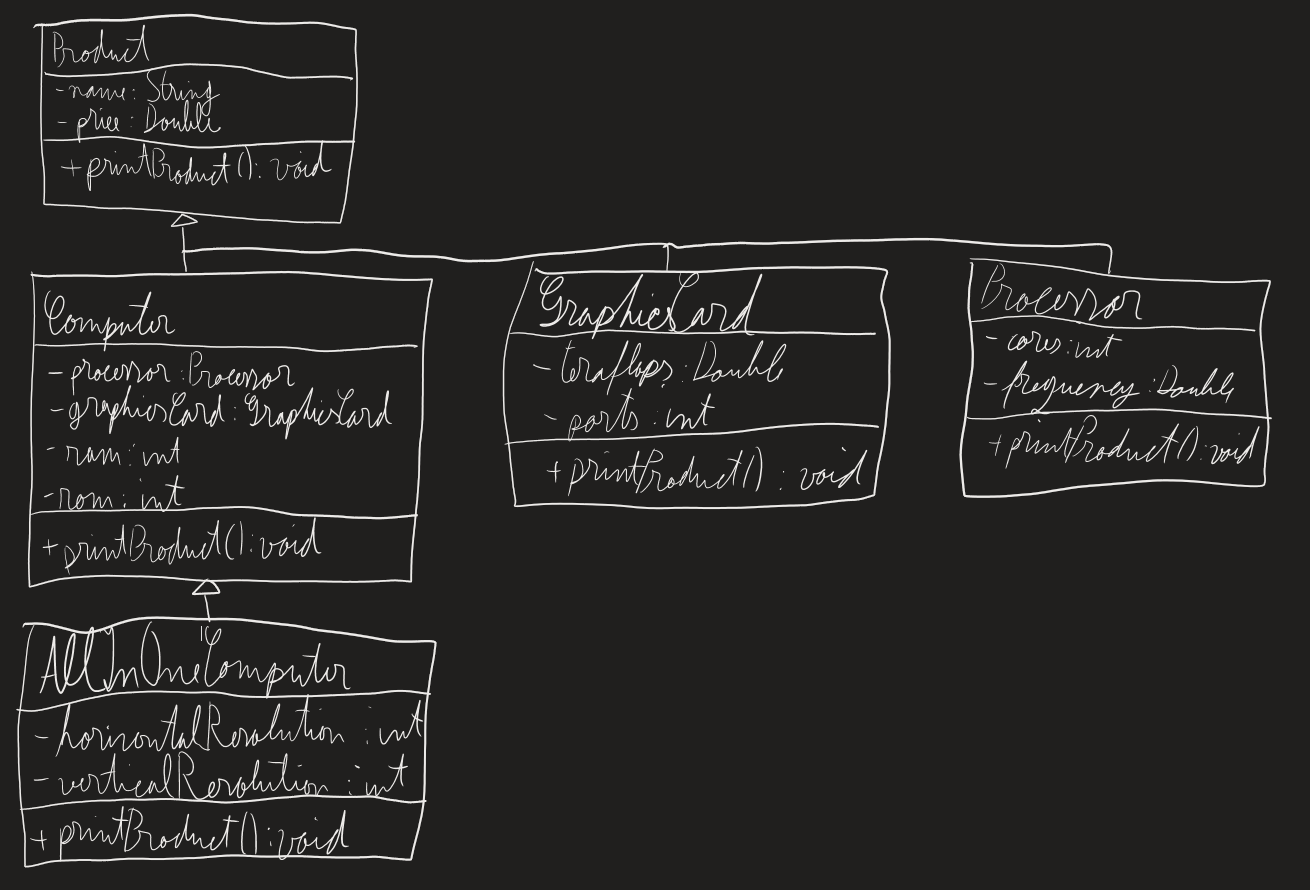 Product
- name: String
- price: Double
+ printProduct(): void
Computer
- processor: Processor
- graphicsCard: GraphicsCard
- ram: int
- rom: int
+ printProduct(): void
GraphicsCard
- teraflops: Double
- ports: int
+ printProduct(): void
Processor
- cores: int
- frequency: Double
+ printProduct(): void
AllInOneComputer
- horizontalResolution: int
- verticalResolution: int
+ printProduct(): void